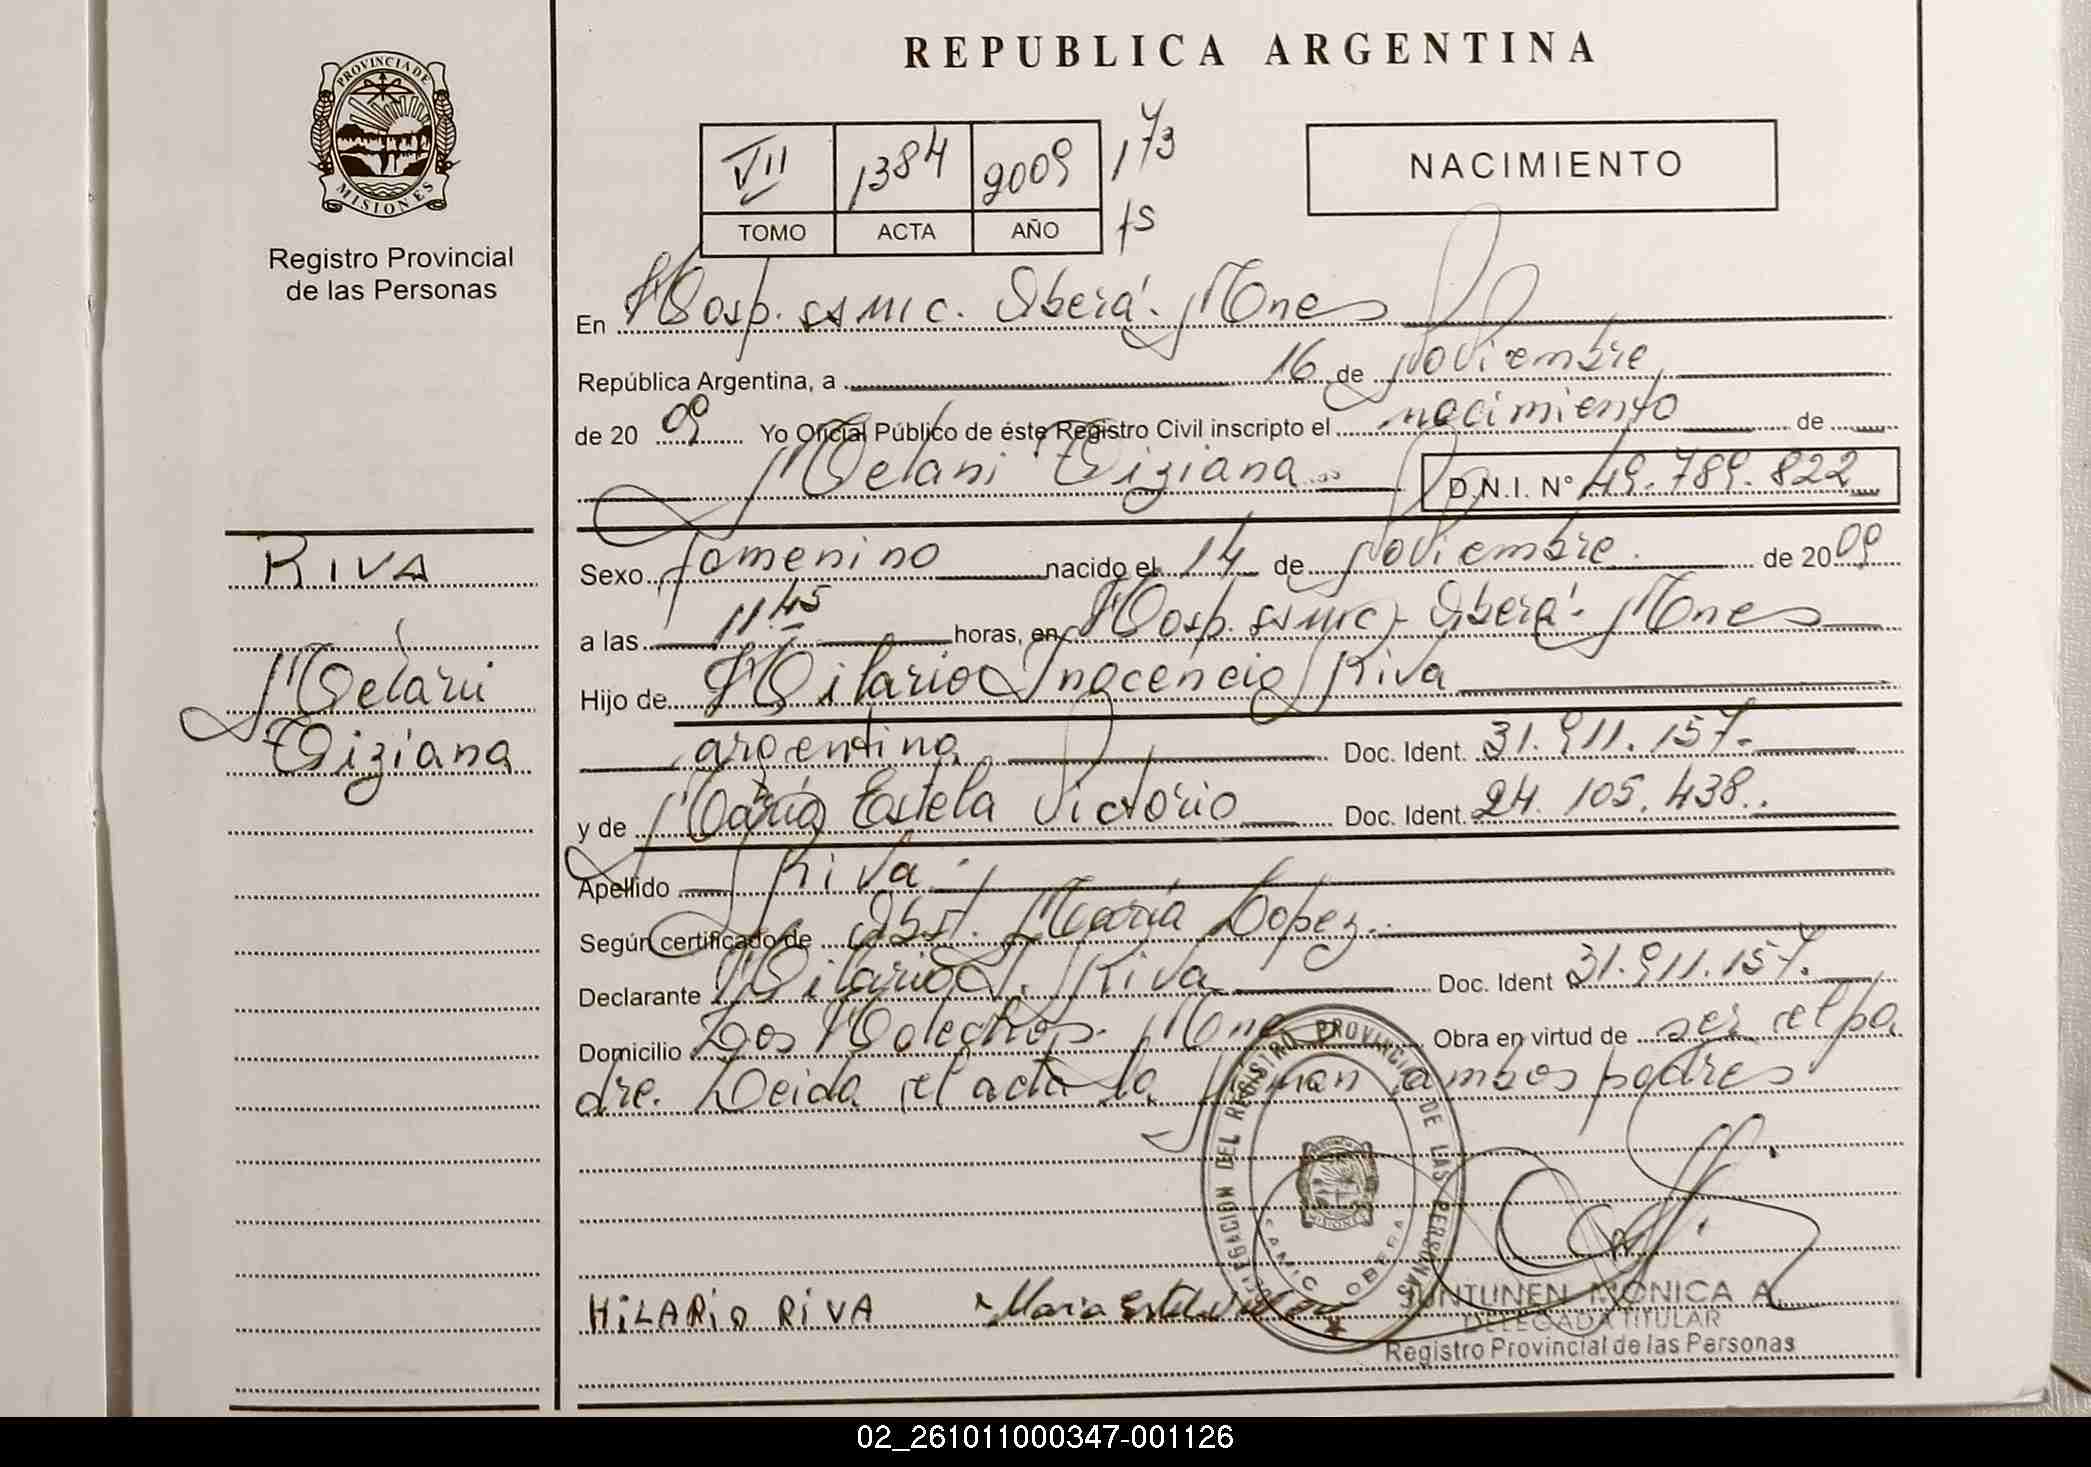 REPUBLICA ARGENTINA
PROVINCIA DE
MISIONES
Registro Provincial
de las Personas
VII 1384 2009 173
TOMO ACTA AÑO fs
NACIMIENTO
En Hosp. SAMIC. Oberá. Mnes
República Argentina, a 16 de Noviembre
de 2009 Yo Oficial Público de éste Registro Civil inscripto el nacimiento de
Melani Tiziana D.N.I. N° 49.789.822
RIVA
Melani
Tiziana
Sexo femenino nacido el 14 de Noviembre de 2009
a las 11.45 horas, en Hosp. SAMIC. Oberá. Mnes
Hijo de Hilario Inocencio Riva
argentina Doc. Ident. 31.911.157.
y de María Estela Victorio Doc. Ident. 24.105.438.
Apellido Riva
Según certificado de Obst. María Lopez.
Declarante Hilario I. Riva Doc. Ident 31.911.157.
Domicilio Los Helechos. Mnes Obra en virtud de ser el pa
dre. Leida el acta la firman ambos padres
DELEGACION DEL REGISTRO PROVINCIAL DE LAS PERSONAS
SAMIC OBERA
MISIONES
HILARIO RIVA Maria Estela
JUNTUNEN MONICA A.
DELEGADA TITULAR
Registro Provincial de las Personas
02_261011000347-001126